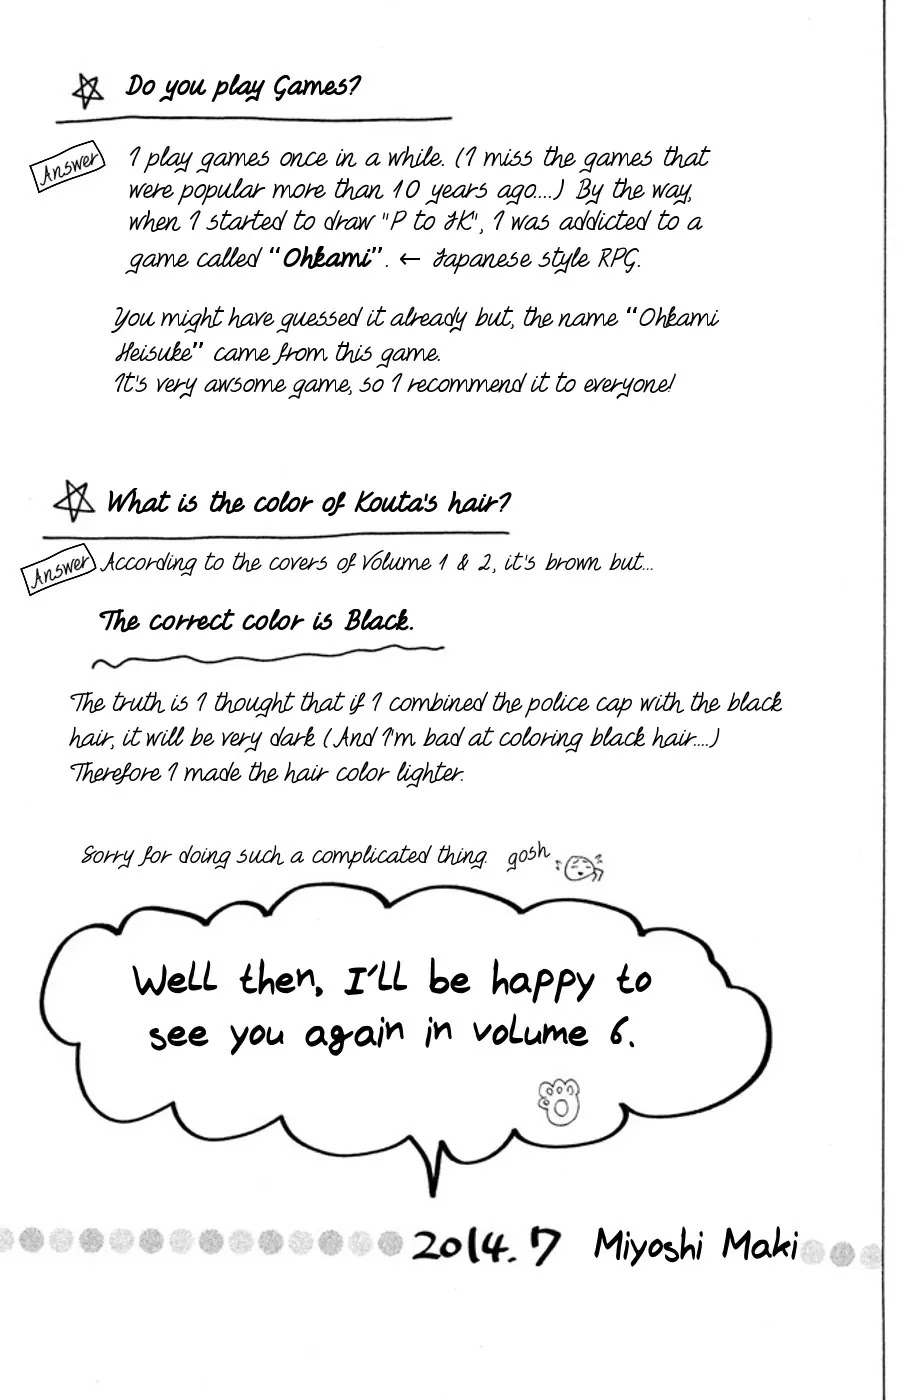 Do you play Games?
Answer
I play games once in a while. (I miss the games that
were popular more than 10 years ago....) By the way,
when I started to draw "P to JK", I was addicted to a
game called "Ohkami". ← Japanese style RPG.
You might have guessed it already but, the name "Ohkami
Heisuke" came from this game.
It's very awsome game, so I recommend it to everyone!
What is the color of Kouta's hair?
Answer
According to the covers of Volume 1 & 2, it's brown but...
The correct color is Black.
The truth is I thought that if I combined the police cap with the black
hair, it will be very dark (And I'm bad at coloring black hair....)
Therefore I made the hair color lighter.
Sorry for doing such a complicated thing. gosh
Well then, I'll be happy to
see you again in volume 6.
2014.7 Miyoshi Maki